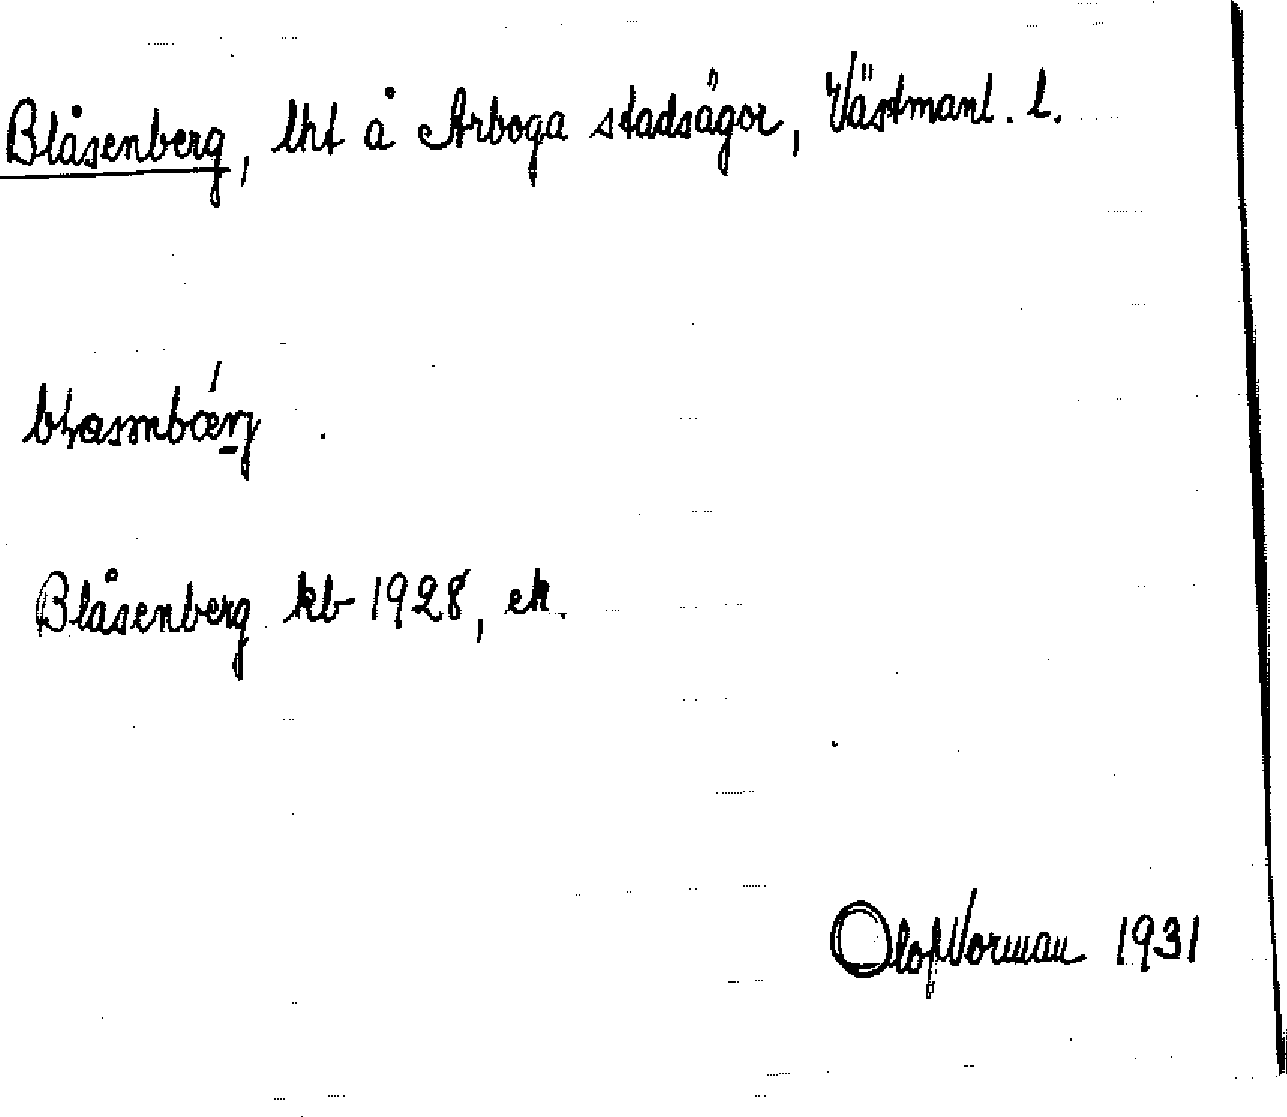 Blåsenberg, lht å Arboga stadsägor, Västmanl. l.
Blåsenberg kb 1928, ek.
Olof Norman 1931